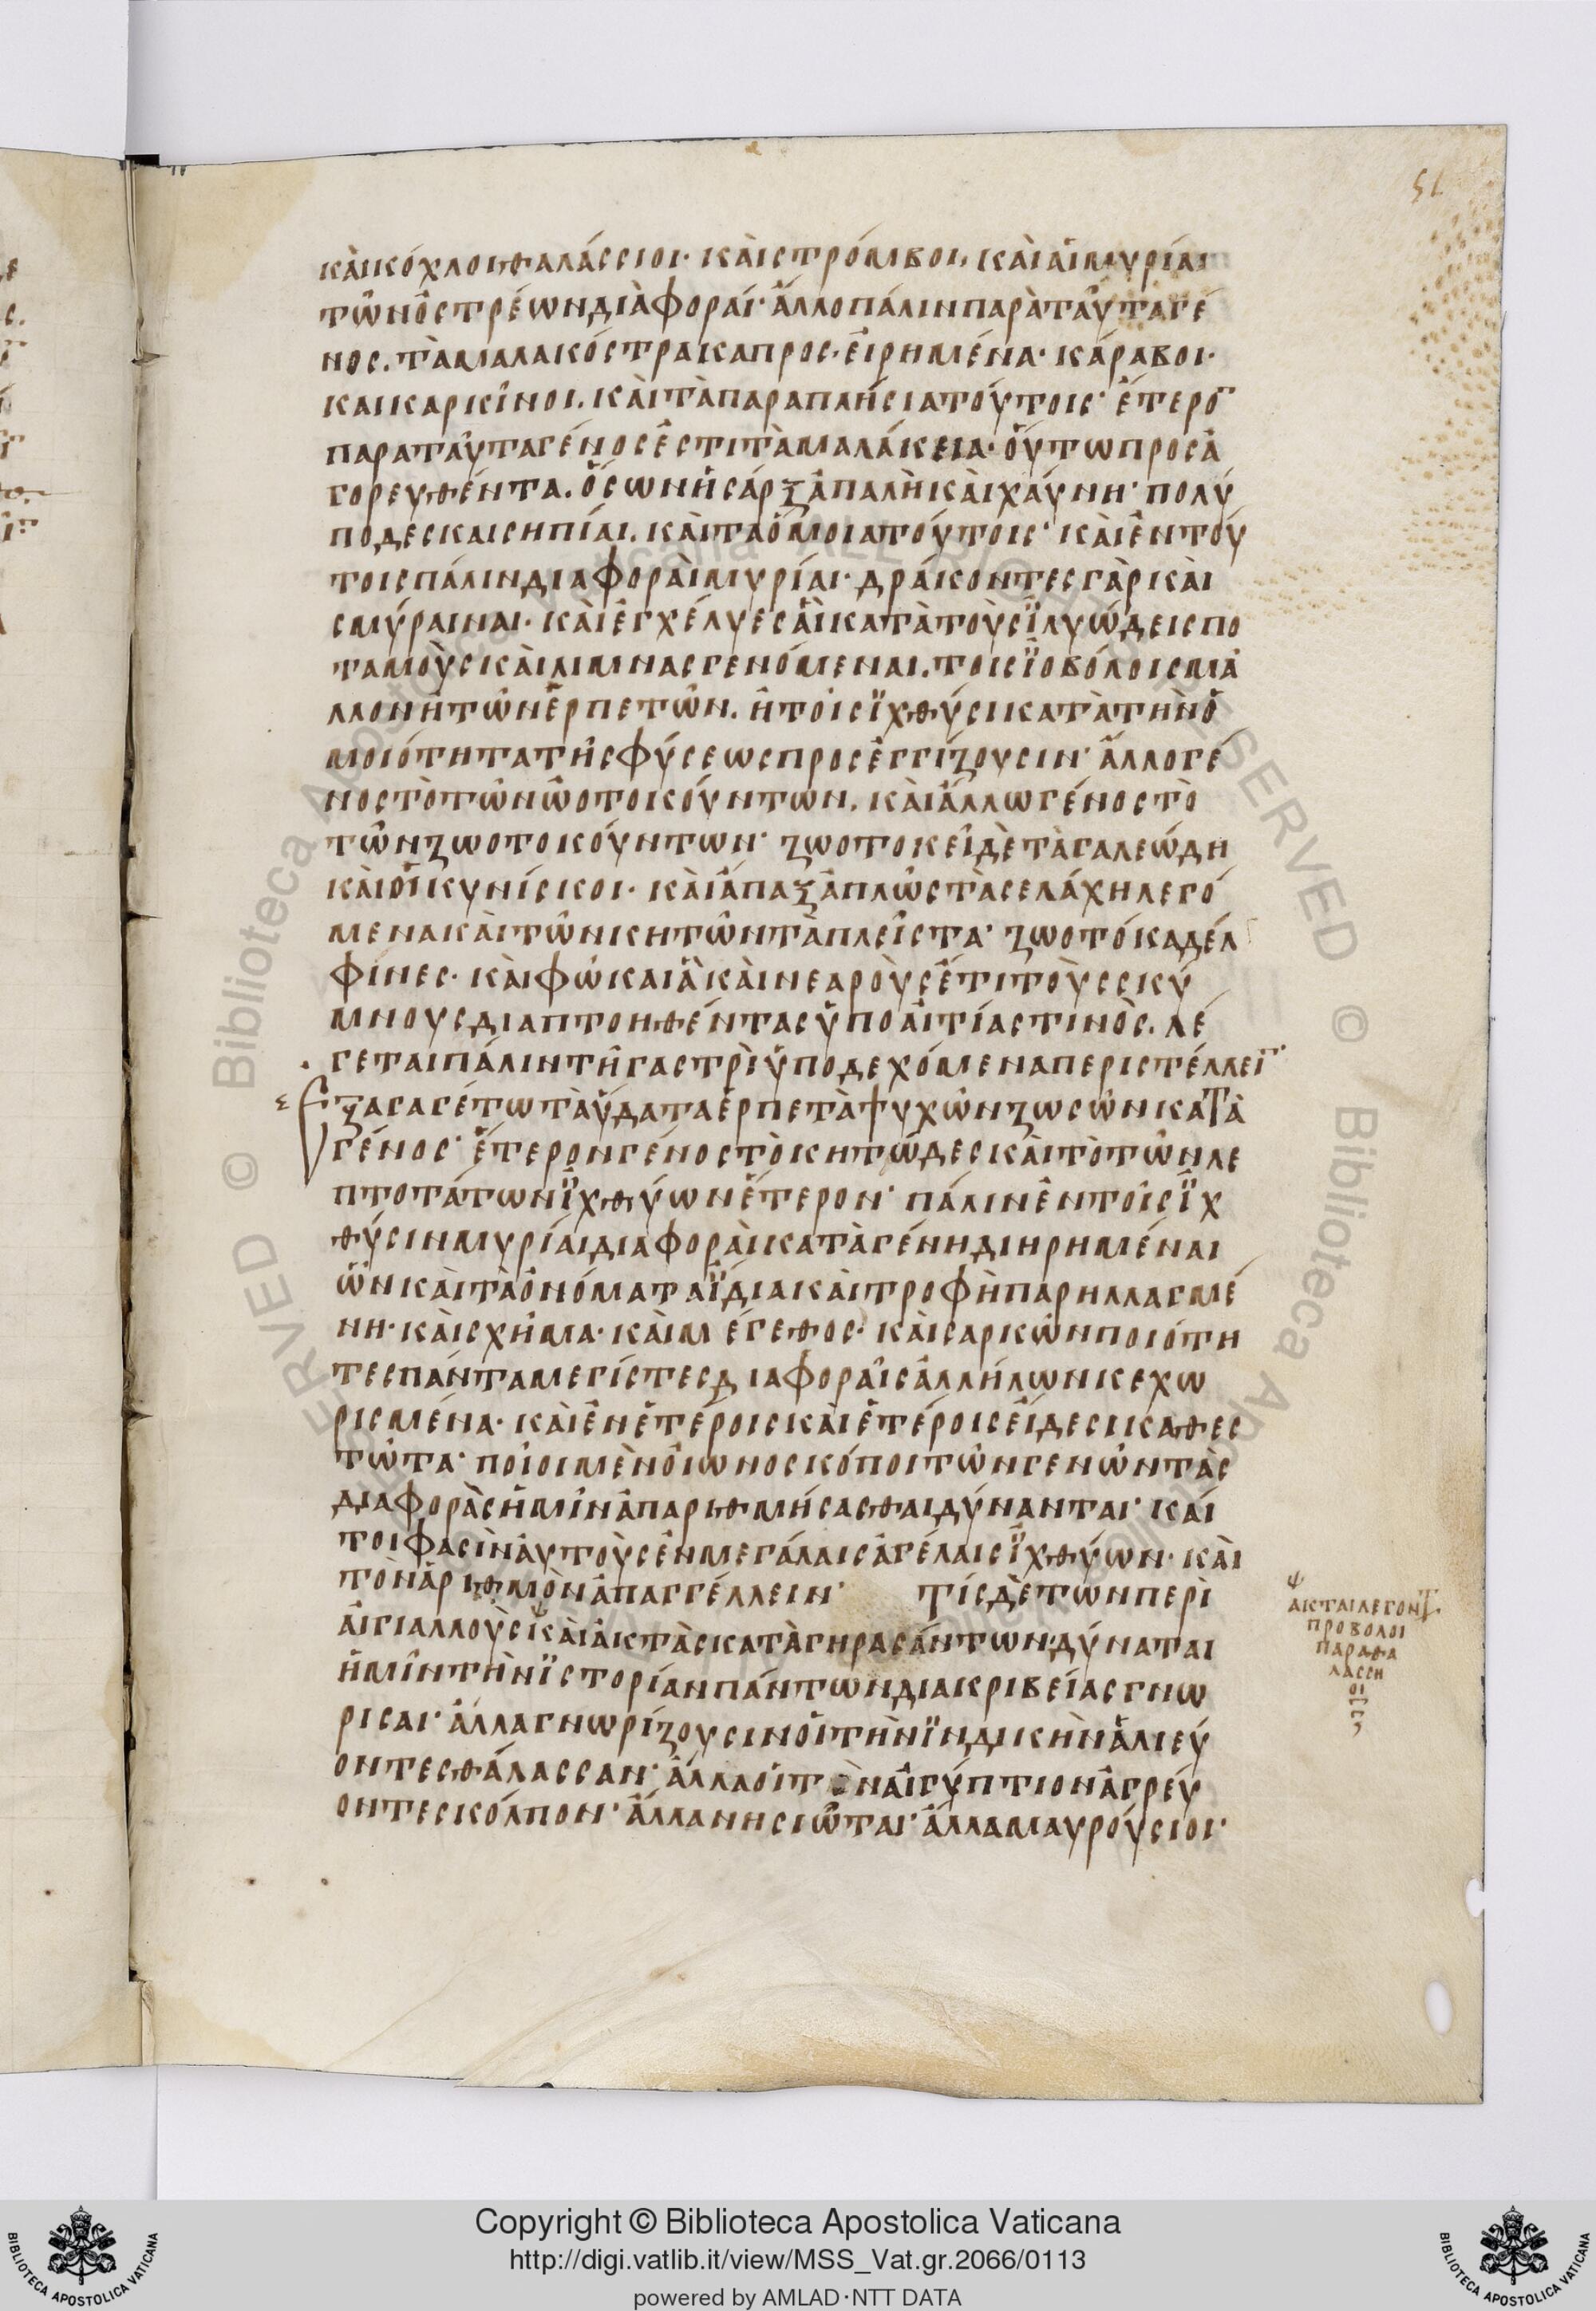 51
κὰι κόχλοι θαλάσσιοι· κὰι στρόμβοι, κὰι ἁι μυρίαι
τῶν ὀστρέων διὰφοραί· ἄλλο πάλιν παρὰ ταῦτα γέ
νος. τὰ μαλακόστρακα προσ·ειρημένα· κάραβοι·
και καρκίνοι. κὰι τὰ παραπλήσια τούτοις· ἕτερο̅
παρα ταῦτα γένος ἐστι τὰ μαλάκεια· ὅυτω προσα
γορευθέντα. ὅσων ἡ σάρξ ἁπαλὴ κὰι χάυνη· πολύ
ποδες και σηπίαι. κὰι τα ὅμοια τούτοις· κὰι ἐν τού
τοις πάλιν διαφορὰι μυρίαι· δράκοντες γὰρ κὰι
σμύραιναι. κὰι ἐγχέλυες ἁὶ κατὰ τοὺς ϊλυώδεις πο
ταμοὺς κὰι λιμνας γενόμεναι. τοις ϊοβόλοις μᾶ
λλον ἢ τῶν ἑρπετῶν. ἢ τοῖς ϊχθύσι κατὰ τὴν ὁ
μοιότητα τῆς φύσεως προσεγγίζουσιν· ἄλλο γέ
νος τὸ τῶν ὠοτοκούντων. κὰι ἄλλω γένος τὸ
τῶν ζωοτοκούντων· ζωοτοκεῖ δὲ τὰ γαλεώδη
κὰι ὁι κυνίσκοι· κὰι ἅπαξ ἁπλῶς τὰ σελάχη λεγό
μενα κὰι τῶν κητῶν τὰ πλεῖστα· ζωοτόκα δέλ
φίνες· κὰι φώκαι ἃ κὰι νεαροὺς ἔτι τοὺς σκύ
μνους διαπτοηθέντας ὑπο ἀιτίας τινὸς. λέ
γεται πάλιν τῆ γαστρὶ ὑποδεχόμενα περιστέλλει̅·
Εξαγαγέτω τὰ ὕδατα ἑρπετὰ ψυχῶν ζωσῶν κατὰ
γένος· ἕτερον γένος τὸ κητώδες κὰι τὸ τῶν λε
πτοτάτων ϊχθύων ἕτερον· πάλιν ἐν τοῖς ϊχ
θύσιν μυρίαι διαφορὰι κατὰ γένη διηρημέναι
ὧν κὰι τὰ ὀνόματα ϊδια κὰι τροφὴ παρηλλαγμέ
νη· κὰι σχῆμα· κὰι μέγεθος· κὰι σαρκῶν ποιότη
τες πάντα μεγίστες διαφοραῖς ἀλλήλων κεχω
ρισμένα· κὰι ἐν ἑτέροις κὰι ἑτέροις εἴδεσι καθες
τῶτα· ποῖοι μὲν ὀιωνοσκόποι τῶν γενῶν τὰς
διαφορὰς ἡμῖν ἀπαριθμήσασθαι δύνανται· καί
τοι φασὶν ἀυτοὺς ἐν μεγάλαις ἀγέλαις ϊχθύων· κὰι
τὸν ἀριθμὸν ἀπαγγέλλειν· τίς δὲ τῶν περὶ
ἀιγιαλλοὺς κὰι ἀκτὰς καταγηρασάντων· δύναται
ἡμῖν τὴν ϊστορίαν πάντων διακριβείας γνω
ρισαι· ἄλλα γνωρίζουσιν ὁι τὴν ϊνδικὴν ἁλιεύ
οντες θάλασσαν· ἄλλα ὁι τὸν ἀιγύπτιον ἀγρεύ
οντες κόλπον· ἄλλα νησιῶται· ἄλλα μαυρούσιοι·
ακται λεγοντ.
προβολοι
παραθα
λασση
οι